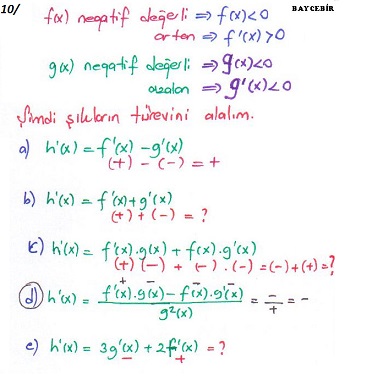 10/ BAYCEBİR
f(x) negatif değerli ⇒ f(x)<0
artan ⇒ f'(x)>0
g(x) negatif değerli ⇒ g(x)<0
azalan ⇒ g'(x)<0
Şimdi şıkların türevini alalım.
a) h'(x) = f'(x) - g'(x)
(+) - (-) = +
b) h'(x) = f'(x)+g'(x)
(+) + (-) = ?
c) h'(x) = f'(x).g(x) + f(x).g'(x)
(+) (-) + (-) . (-) = (-) + (+) = ?
+ - - -
d) h'(x) = f'(x).g(x) - f(x).g'(x) / g²(x) = - / + = -
e) h'(x) = 3g'(x) + 2f'(x) = ?
- +